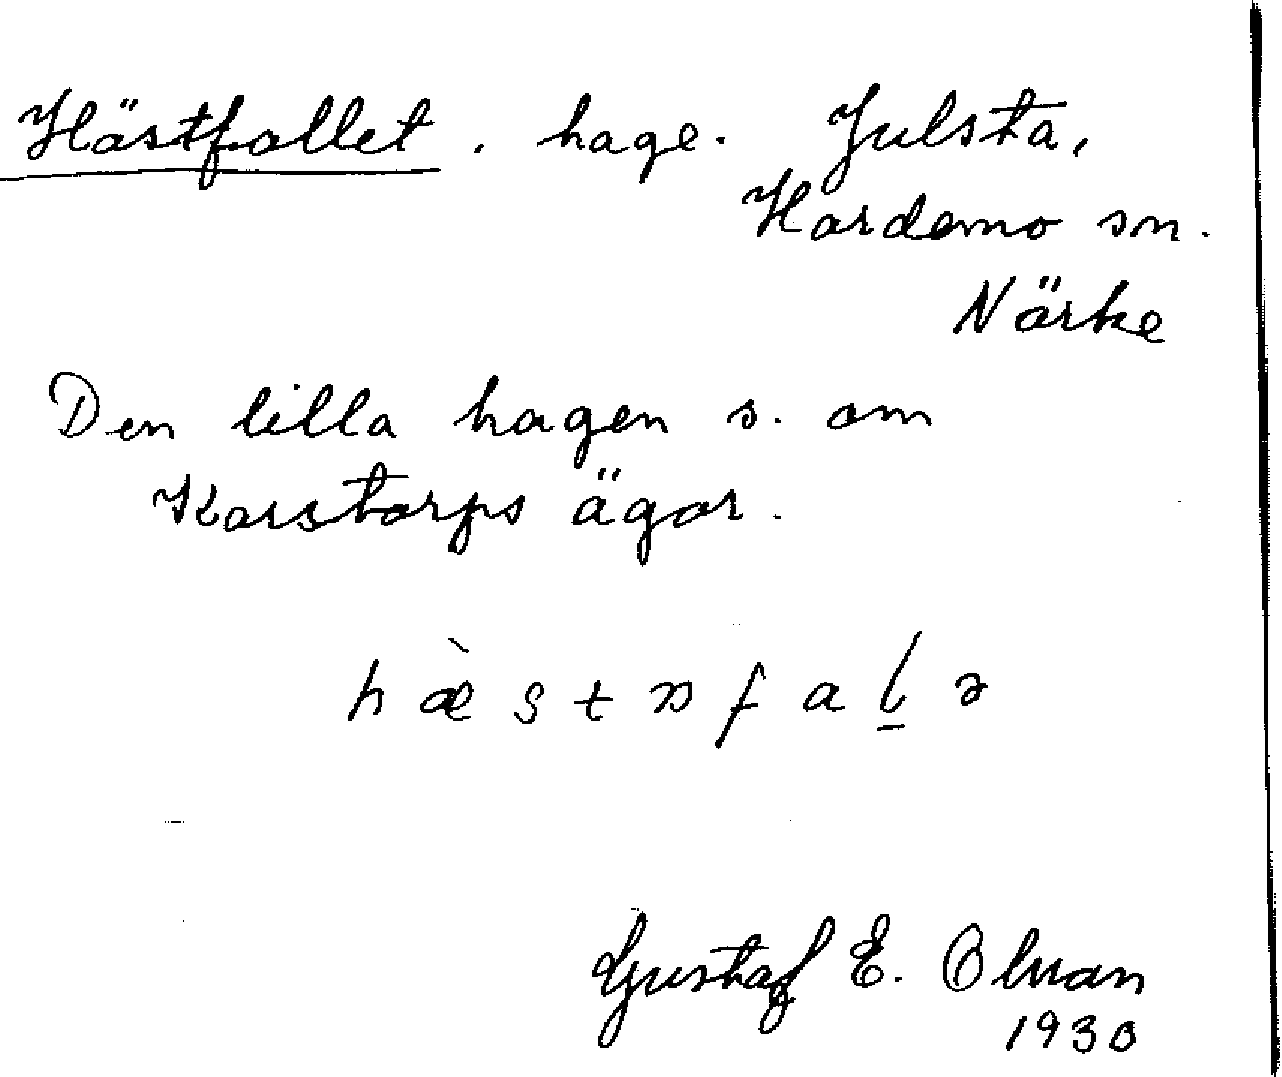 Hästfallet. hage. Julsta,
Hardemo sn.
Närke
Den lilla hagen s. om
Karstorps ägor.
Gustaf E. Olsson
1930